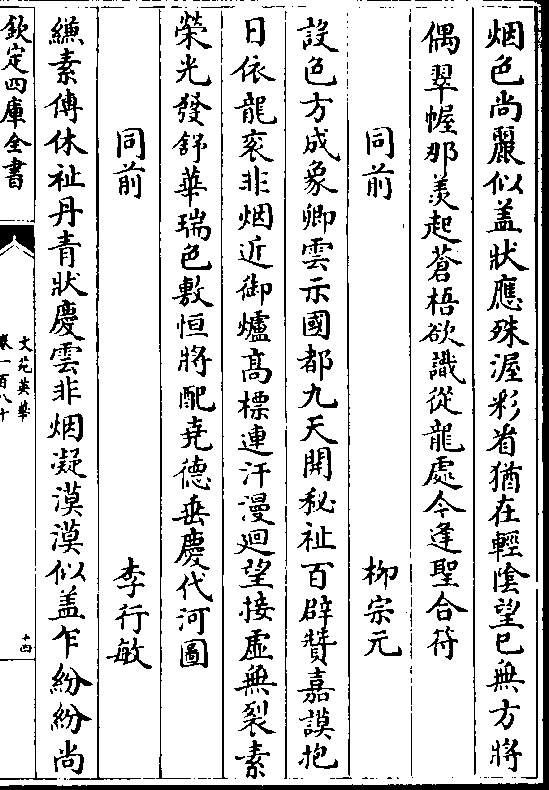 烟色尚麗似盖狀應殊渥彩看猶在輕隂望已無方將
偶翠幄那羡起蒼梧欲識從龍處今逢聖合符
同前 栁宗元
設色方成象卿雲示國都九天開秘祉百辟賛嘉謨抱
日依龍衮非烟近御爐髙標連汗漫迴望接虚無裂素
榮光發舒華瑞色敷恒將配堯德垂慶代河圖
同前 李行敏
縑素傅休祉丹青狀慶雲非烟凝漠漠似盖乍紛紛尚
欽定四庫全書
文苑英華
卷一百八十
十四